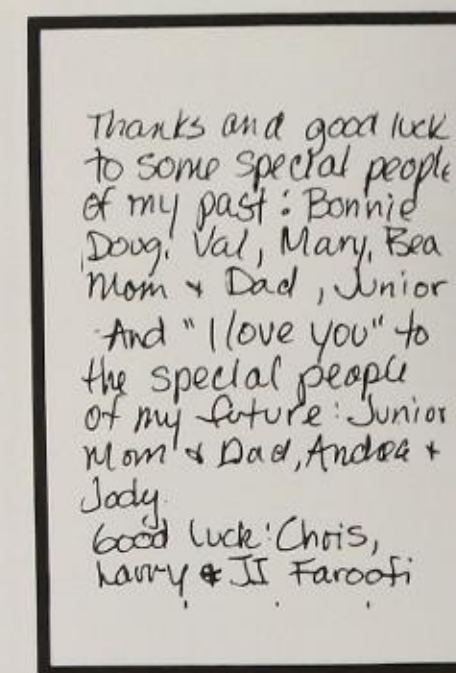 Thanks and good luck
to some special people
of my past: Bonnie
Doug, Val, Mary, Bea
Mom & Dad, Junior
And "I love you" to
the special people
of my future: Junior
Mom & Dad, Andrea &
Jody.
Good luck: Chris,
Larry & JJ Faroofi